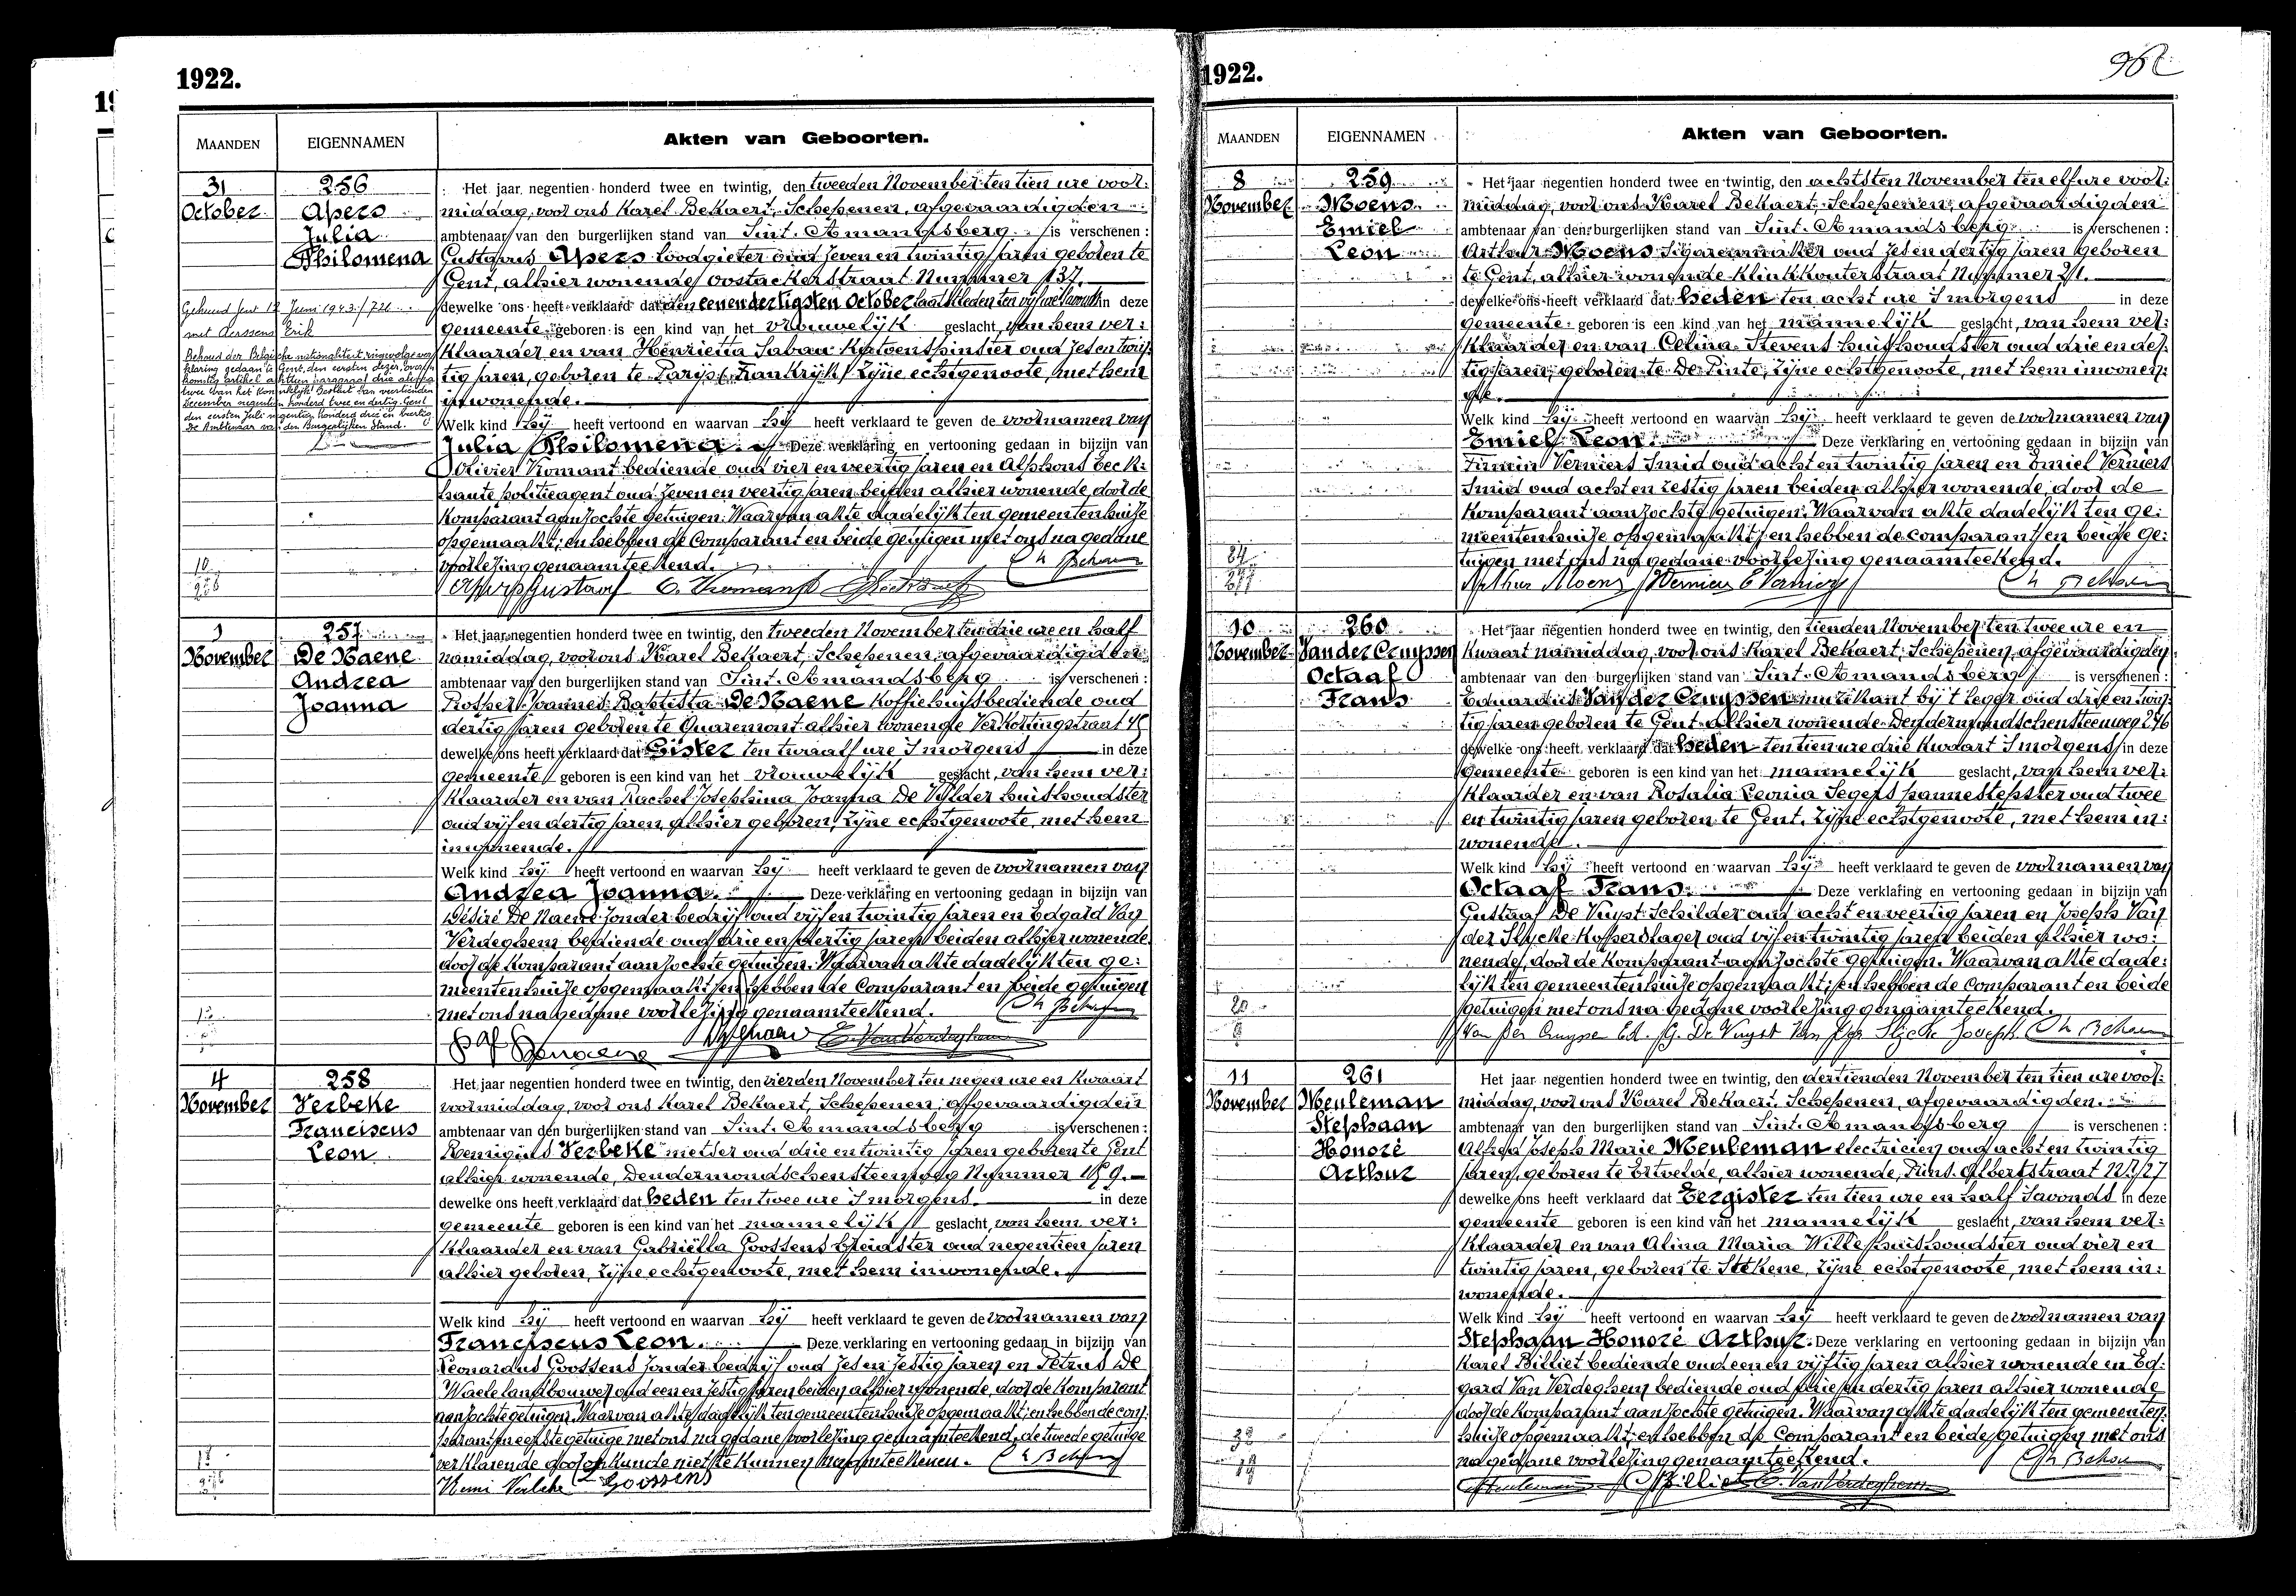 1922.
MAANDEN
EIGENNAMEN
Akten van Geboorten.
31
October
256
Apers
Julia
Philomena
Het jaar negentien honderd twee en twintig, den tweeden November ten tien ure voor:
middag, voor ons Karel Bekaert, Schepenen, afgevaardigden
ambtenaar van den burgerlijken stand van Sint-Amandsberg is verschenen:
Gustavus Apers loodgieter oud zeven en twintig jaren geboren te
Gent, alhier wonende Oostackerstraat Nummer 137.
dewelke ons heeft verklaard dat den eenendertigsten October laatstleden ten vijf ure 's namid. in deze
gemeente geboren is een kind van het vrouwelijk geslacht, van hem ver:
klaarder en van Henrietta Saban Katoenspinster oud zes en twin:
tig jaren, geboren te Parijs (Frankrijk) zijne echtgenoote, met hem
inwonende.
Welk kind hij heeft vertoond en waarvan hij heeft verklaard te geven de voornamen van
Julia Philomena. Deze verklaring en vertooning gedaan in bijzijn van
Olivier Vromant bediende oud vier en veertig jaren en Alphons Eeck:
haute politieagent oud zeven en veertig jaren beiden alhier wonende, door de
Komparant aanzochte getuigen. Waarvan akte dadelijk ten gemeentenhuize
opgemaakt; en hebben de Comparant en beide getuigen met ons na gedane
voorlezing genaamteekend.
Gehuwd Gent 12 Juni 1943 / 721
met Aerssens Erik
Behoud der Belgische nationaliteit ingevolge ver
klaring gedaan te Gent, den eersten dezer, overeen
komstig artikel achttien paragraaf drie alinea
twee van het Koninklijk Besluit van veertienden
December negentien honderd twee en dertig. Gent
den eersten Juli negentien honderd drie en veertig.
De Ambtenaar van den Burgerlijken Stand.
Apers Gustaaf O. Vromant
1
November
257
De Naene
Andrea
Joanna
Het jaar negentien honderd twee en twintig, den tweeden November ten drie ure en half
namiddag, voor ons Karel Bekaert, Schepenen, afgevaardigden
ambtenaar van den burgerlijken stand van Sint-Amandsberg is verschenen:
Prosper Joannes Baptista De Naene Koffiehuisbediende oud
dertig jaren geboren te Quaremont alhier wonende Verkortingstraat 45
dewelke ons heeft verklaard dat Gister ten twaalf ure 's morgens in deze
gemeente geboren is een kind van het vrouwelijk geslacht, van hem ver:
klaarder en van Rachel Josephina Joanna De Vylder huishoudster
oud vijf en dertig jaren, alhier geboren, zijne echtgenoote, met hem
inwonende.
Welk kind hij heeft vertoond en waarvan hij heeft verklaard te geven de voornamen van
Andrea Joanna. Deze verklaring en vertooning gedaan in bijzijn van
Désiré De Naene zonder bedrijf oud vijf en twintig jaren en Edgard Van
Verdeghem bediende oud drie en dertig jaren beiden alhier wonende
door de Komparant aanzochte getuigen. Waarvan akte dadelijk ten ge:
meentenhuize opgemaakt; en hebben de Comparant en beide getuigen
met ons na gedane voorlezing genaamteekend.
E. Van Verdeghem
4
November
258
Verbeke
Franciscus
Leon
Het jaar negentien honderd twee en twintig, den vierden November ten negen ure en kwaart
voormiddag, voor ons Karel Bekaert, Schepenen, afgevaardigden
ambtenaar van den burgerlijken stand van Sint-Amandsberg is verschenen:
Remigius Verbeke metser oud drie en twintig jaren geboren te Gent
alhier wonende, Dendermondschensteenweg Nummer 159.
dewelke ons heeft verklaard dat heden ten twee ure 's morgens. in deze
gemeente geboren is een kind van het mannelijk geslacht, van hem ver:
klaarder en van Gabriëlla Goossens breidster oud negentien jaren
alhier geboren, zijne echtgenoote, met hem inwonende.
Welk kind hij heeft vertoond en waarvan hij heeft verklaard te geven de voornamen van
Franciscus Leon. Deze verklaring en vertooning gedaan in bijzijn van
Leonardus Goossens zonder bedrijf oud zes en zestig jaren en Petrus De
Waele landbouwer oud een en zestig jaren beiden alhier wonende, door de Komparant
aanzochte getuigen. Waarvan akte dadelijk ten gemeentenhuize opgemaakt; en hebben de com:
parant en eerste getuige met ons na gedane voorlezing genaamteekend, de tweede getuige
verklarende door onkunde niet te kunnen naamteekenen.
Goossens
1922.
MAANDEN
EIGENNAMEN
Akten van Geboorten.
8
November
259
Moens
Emiel
Leon
Het jaar negentien honderd twee en twintig, den achtsten November ten elf ure voor:
middag, voor ons Karel Bekaert, Schepenen, afgevaardigden
ambtenaar van den burgerlijken stand van Sint-Amandsberg is verschenen:
Arthur Moens Sigarenmaker oud zes en dertig jaren geboren
te Gent, alhier wonende Klinkkouterstraat Nummer 21.
dewelke ons heeft verklaard dat heden ten acht ure 's morgens in deze
gemeente geboren is een kind van het mannelijk geslacht, van hem ver:
klaarder en van Celina Stevens huishoudster oud drie en der:
tig jaren, geboren te De Pinte, zijne echtgenoote, met hem inwonen:
de.
Welk kind hij heeft vertoond en waarvan hij heeft verklaard te geven de voornamen van
Emiel Leon. Deze verklaring en vertooning gedaan in bijzijn van
Firmin Verniers Smid oud acht en twintig jaren en Emiel Verniers
Smid oud acht en zestig jaren beiden alhier wonende, door de
Komparant aanzochte getuigen. Waarvan akte dadelijk ten ge:
meentenhuize opgemaakt; en hebben de comparant en beide ge:
tuigen met ons na gedane voorlezing genaamteekend.
Arthur Moens Verniers E Verniers
10
November
260
Van der Cruyssen
Octaaf
Frans
Het jaar negentien honderd twee en twintig, den tienden November ten twee ure en
kwaart namiddag, voor ons Karel Bekaert, Schepenen, afgevaardigden
ambtenaar van den burgerlijken stand van Sint-Amandsberg is verschenen:
Eduardus Van der Cruyssen muzikant bij 't leger oud drie en twin:
tig jaren geboren te Gent alhier wonende Dendermondschensteenweg 246
dewelke ons heeft verklaard dat heden ten tien ure drie kwaart 's morgens in deze
gemeente geboren is een kind van het mannelijk geslacht, van hem ver:
klaarder en van Rosalia Leonia Segers pannestepster oud twee
en twintig jaren geboren te Gent, zijne echtgenoote, met hem in:
wonende.
Welk kind hij heeft vertoond en waarvan hij heeft verklaard te geven de voornamen van
Octaaf Frans. Deze verklaring en vertooning gedaan in bijzijn van
Gustaaf De Vuyst Schilder oud acht en veertig jaren en Joseph Van
der Slycke Koperslager oud vijf en twintig jaren beiden alhier wo:
nende, door de Komparant aanzochte getuigen. Waarvan akte dade:
lijk ten gemeentenhuize opgemaakt; en hebben de Comparant en beide
getuigen met ons na gedane voorlezing genaamteekend.
Van der Cruyssen Ed. G. De Vuyst Van der Slycke Joseph
11
November
261
Meuleman
Stephaan
Honoré
Arthur
Het jaar negentien honderd twee en twintig, den dertienden November ten tien ure voor:
middag, voor ons Karel Bekaert, Schepenen, afgevaardigden
ambtenaar van den burgerlijken stand van Sint-Amandsberg is verschenen:
Alfred Joseph Marie Meuleman electricien oud acht en twintig
jaren, geboren te Ertvelde, alhier wonende, Prins Albertstraat Nr 27
dewelke ons heeft verklaard dat Eergister ten tien ure en half 's avonds in deze
gemeente geboren is een kind van het mannelijk geslacht, van hem ver:
klaarder en van Alina Maria Wille huishoudster oud vier en
twintig jaren, geboren te Stekene, zijne echtgenoote, met hem in:
wonende.
Welk kind hij heeft vertoond en waarvan hij heeft verklaard te geven de voornamen van
Stephaan Honoré Arthur. Deze verklaring en vertooning gedaan in bijzijn van
Karel Billiet bediende oud een en vijftig jaren alhier wonende en Ed:
gard Van Verdeghem bediende oud drie en dertig jaren alhier wonende
door de Komparant aanzochte getuigen. Waarvan akte dadelijk ten gemeenten:
huize opgemaakt; en hebben de Comparant en beide getuigen met ons
na gedane voorlezing genaamteekend.
Meuleman Billiet E. Van Verdeghem